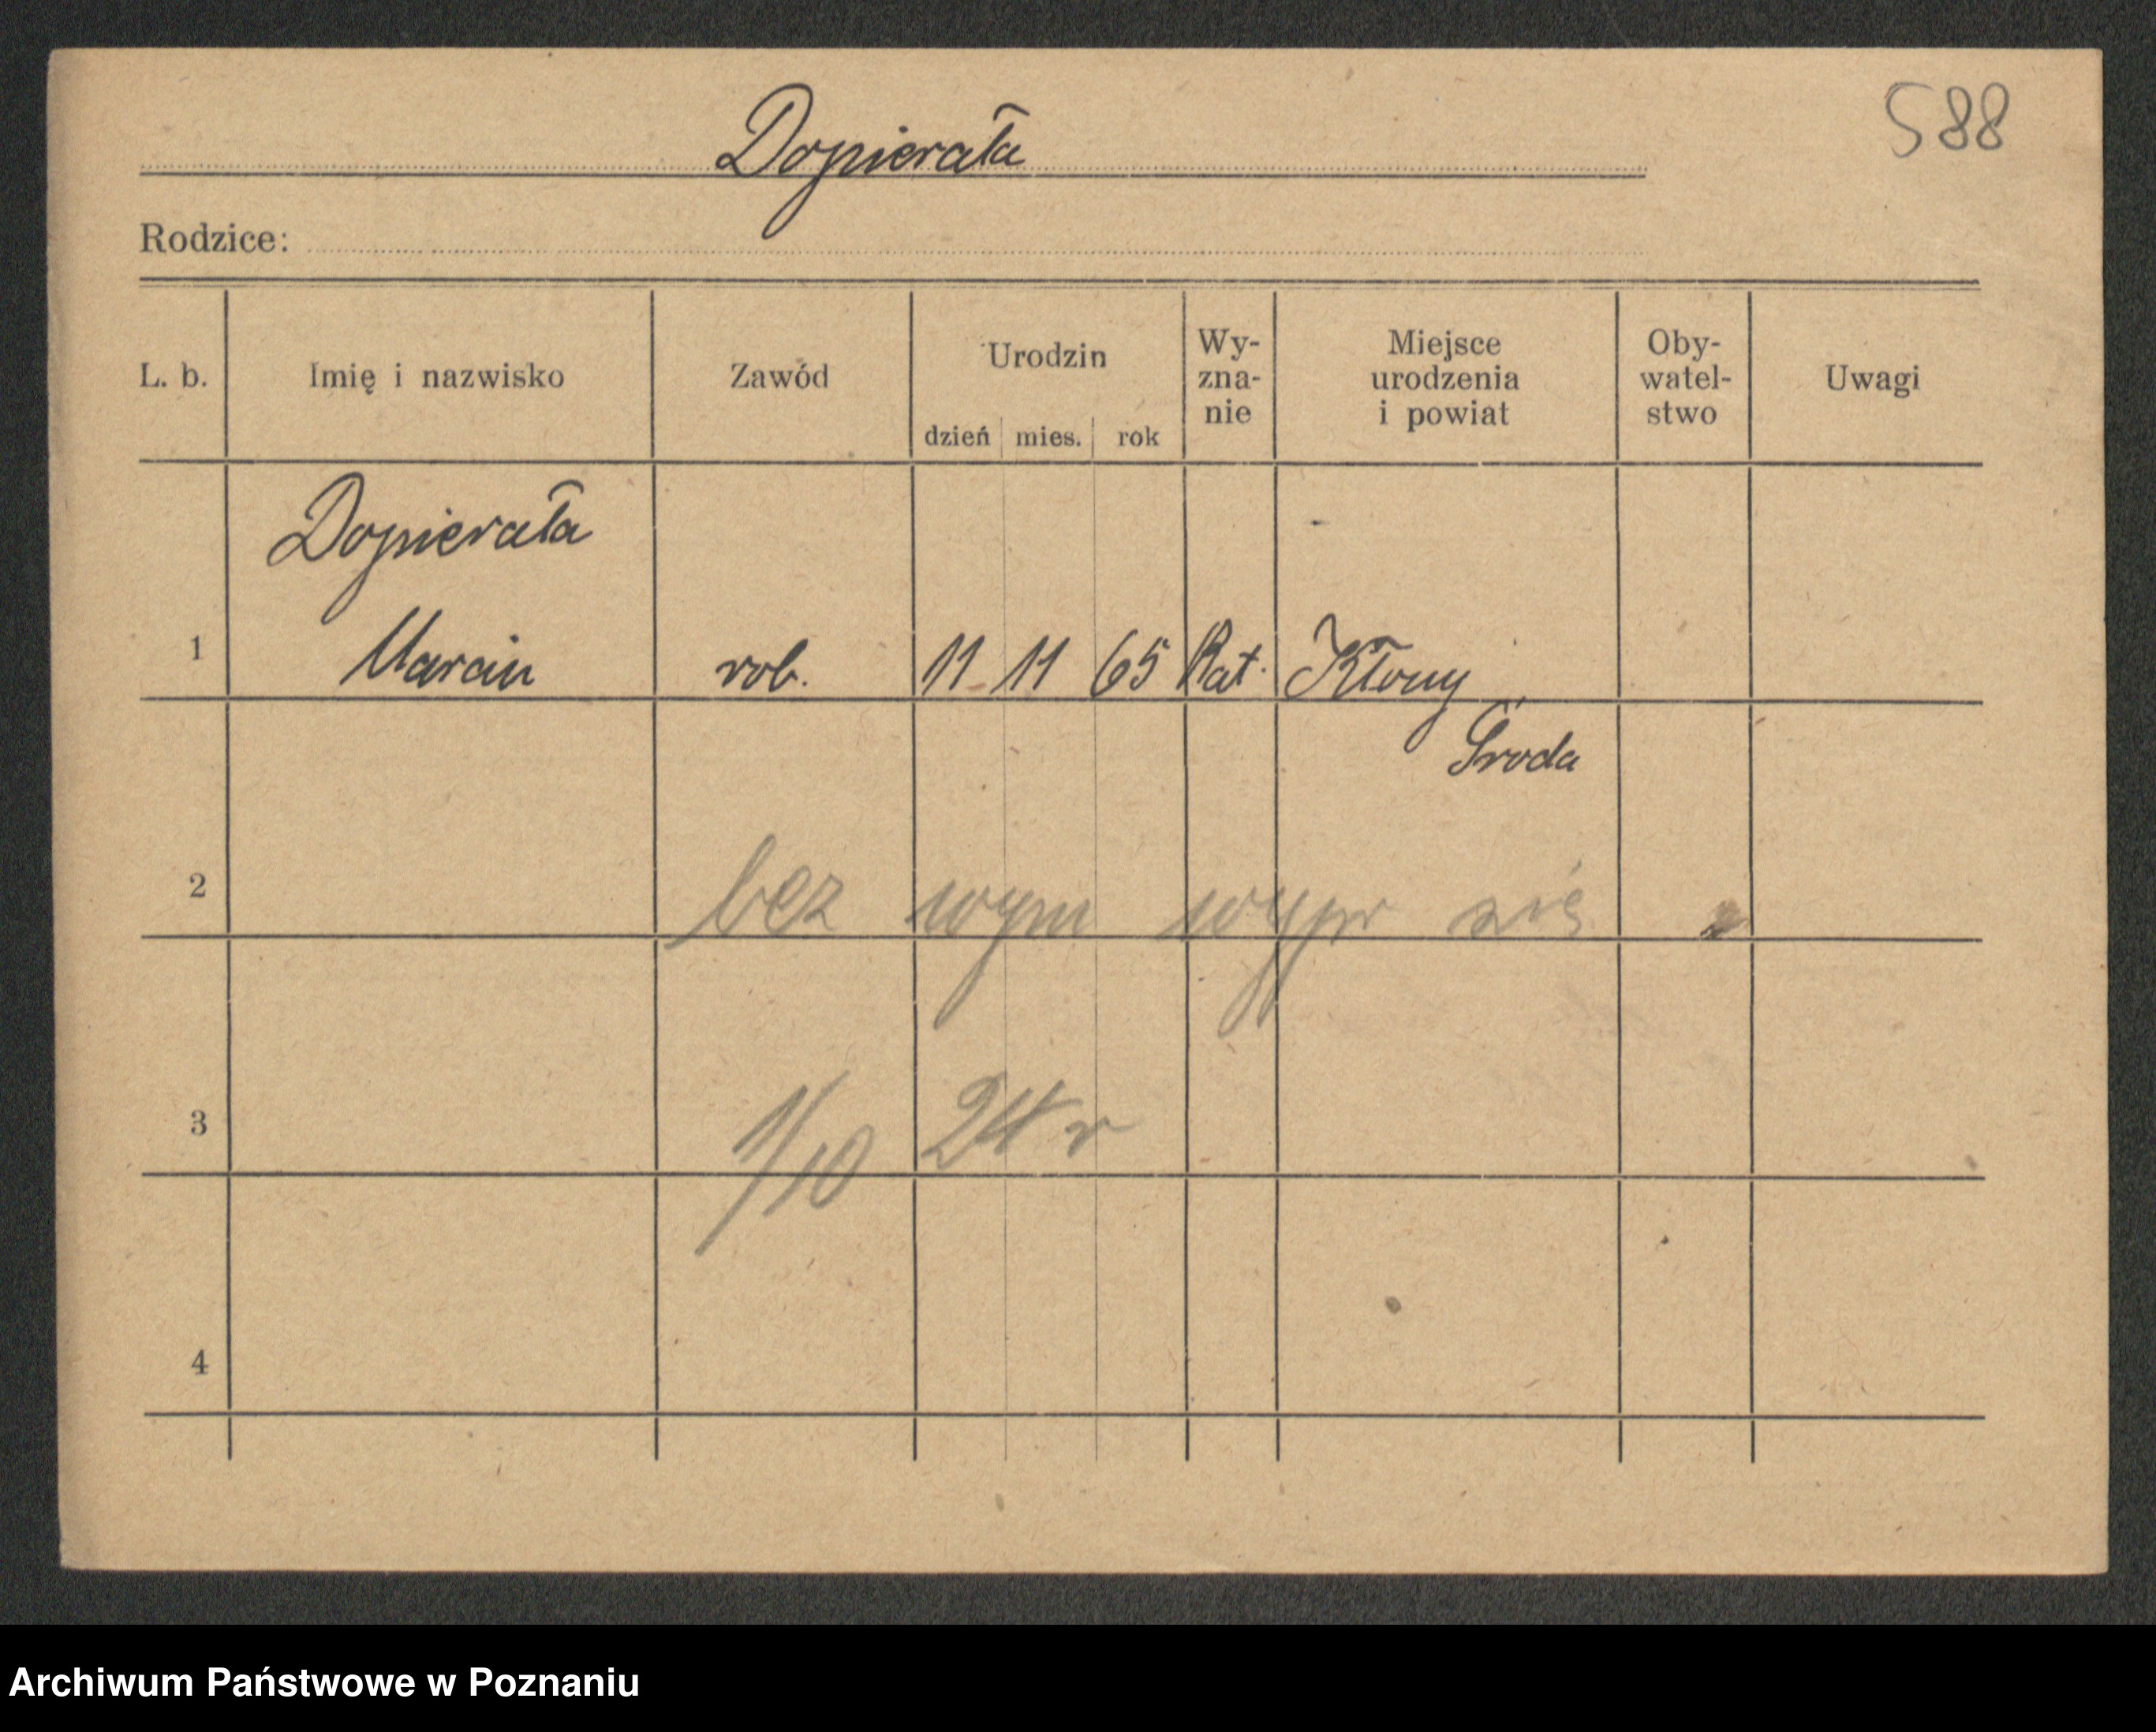 588
Dopierała
Rodzice:
L. b. Imię i nazwisko Zawód Urodzin dzień mies. rok Wy-zna-nie Miejsce urodzenia i powiat Oby-watel-stwo Uwagi
Dopierała
1 Marcin rob. 11 11 65 Kat. Kłony
Środa
2 bez wym wypr się
3 1/10 24 r
4
Archiwum Państwowe w Poznaniu